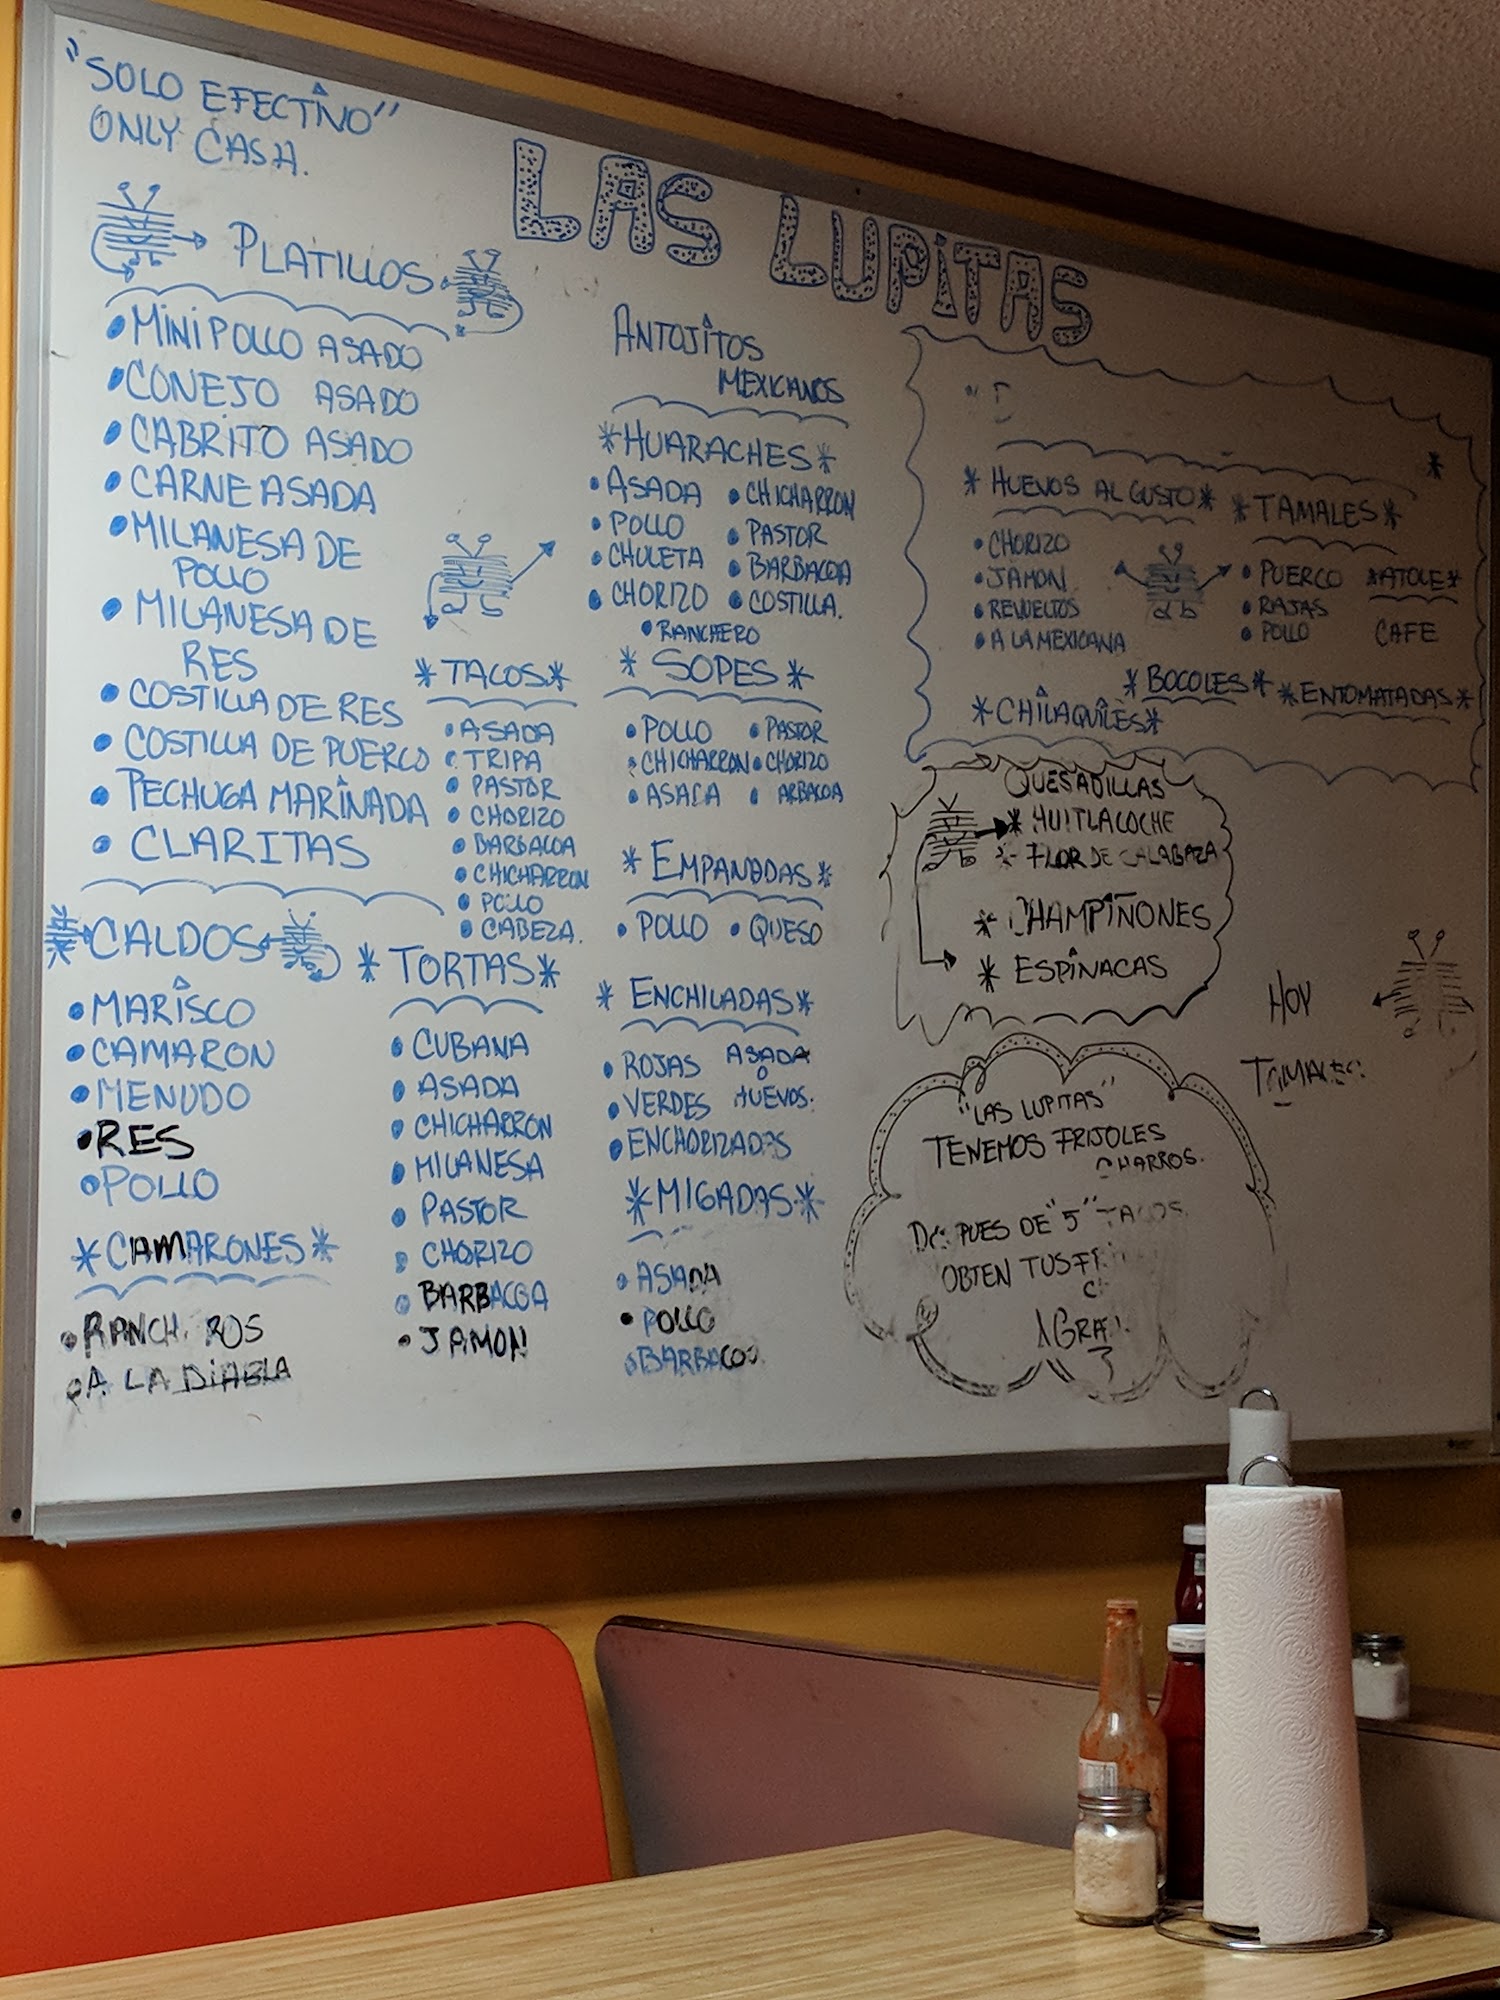 "SOLO EFECTIVO"
ONLY CASH.
LAS LUPITAS
PLATILLOS
MINI POLLO ASADO
CONEJO ASADO
CABRITO ASADO
CARNE ASADA
MILANESA DE
POLLO
MILANESA DE
RES
COSTILLA DE RES
COSTILLA DE PUERCO
PECHUGA MARINADA
CLARITAS
CALDOS
MARISCO
CAMARON
MENUDO
RES
POLLO
*CAMARONES*
RANCH ROS
A LA DIABLA
*TACOS*
ASADA
TRIPA
PASTOR
CHORIZO
BARBACOA
CHICHARRON
POLLO
CABEZA.
*TORTAS*
CUBANA
ASADA
CHICHARRON
MILANESA
PASTOR
CHORIZO
BARBACOA
JAMON
ANTOJITOS
MEXICANOS
*HUARACHES*
ASADA CHICHARRON
POLLO PASTOR
CHULETA BARBACOA
CHORIZO COSTILLA.
RANCHERO
*SOPES*
POLLO PASTOR
CHICHARRON CHORIZO
ASADA ARBACOA
*EMPANADAS*
POLLO QUESO
*ENCHILADAS*
ROJAS ASADA
O
VERDES HUEVOS.
ENCHORIZADAS
*MIGADAS*
ASADA
POLLO
BARBACOA
*HUEVOS AL GUSTO*
CHORIZO
JAMON
REVUELTOS
A LA MEXICANA
*TAMALES*
PUERCO *ATOLE*
RAJAS
POLLO CAFE
*BOCOLES* *ENTOMATADAS*
*CHILAQUILES*
QUESADILLAS
* HUITLACOCHE
* FLOR DE CALABAZA
* CHAMPIÑONES
* ESPINACAS
HOY
TAMALES
"LAS LUPITAS"
TENEMOS FRIJOLES
CHARROS.
DESPUES DE "5" TACOS
OBTEN TUS